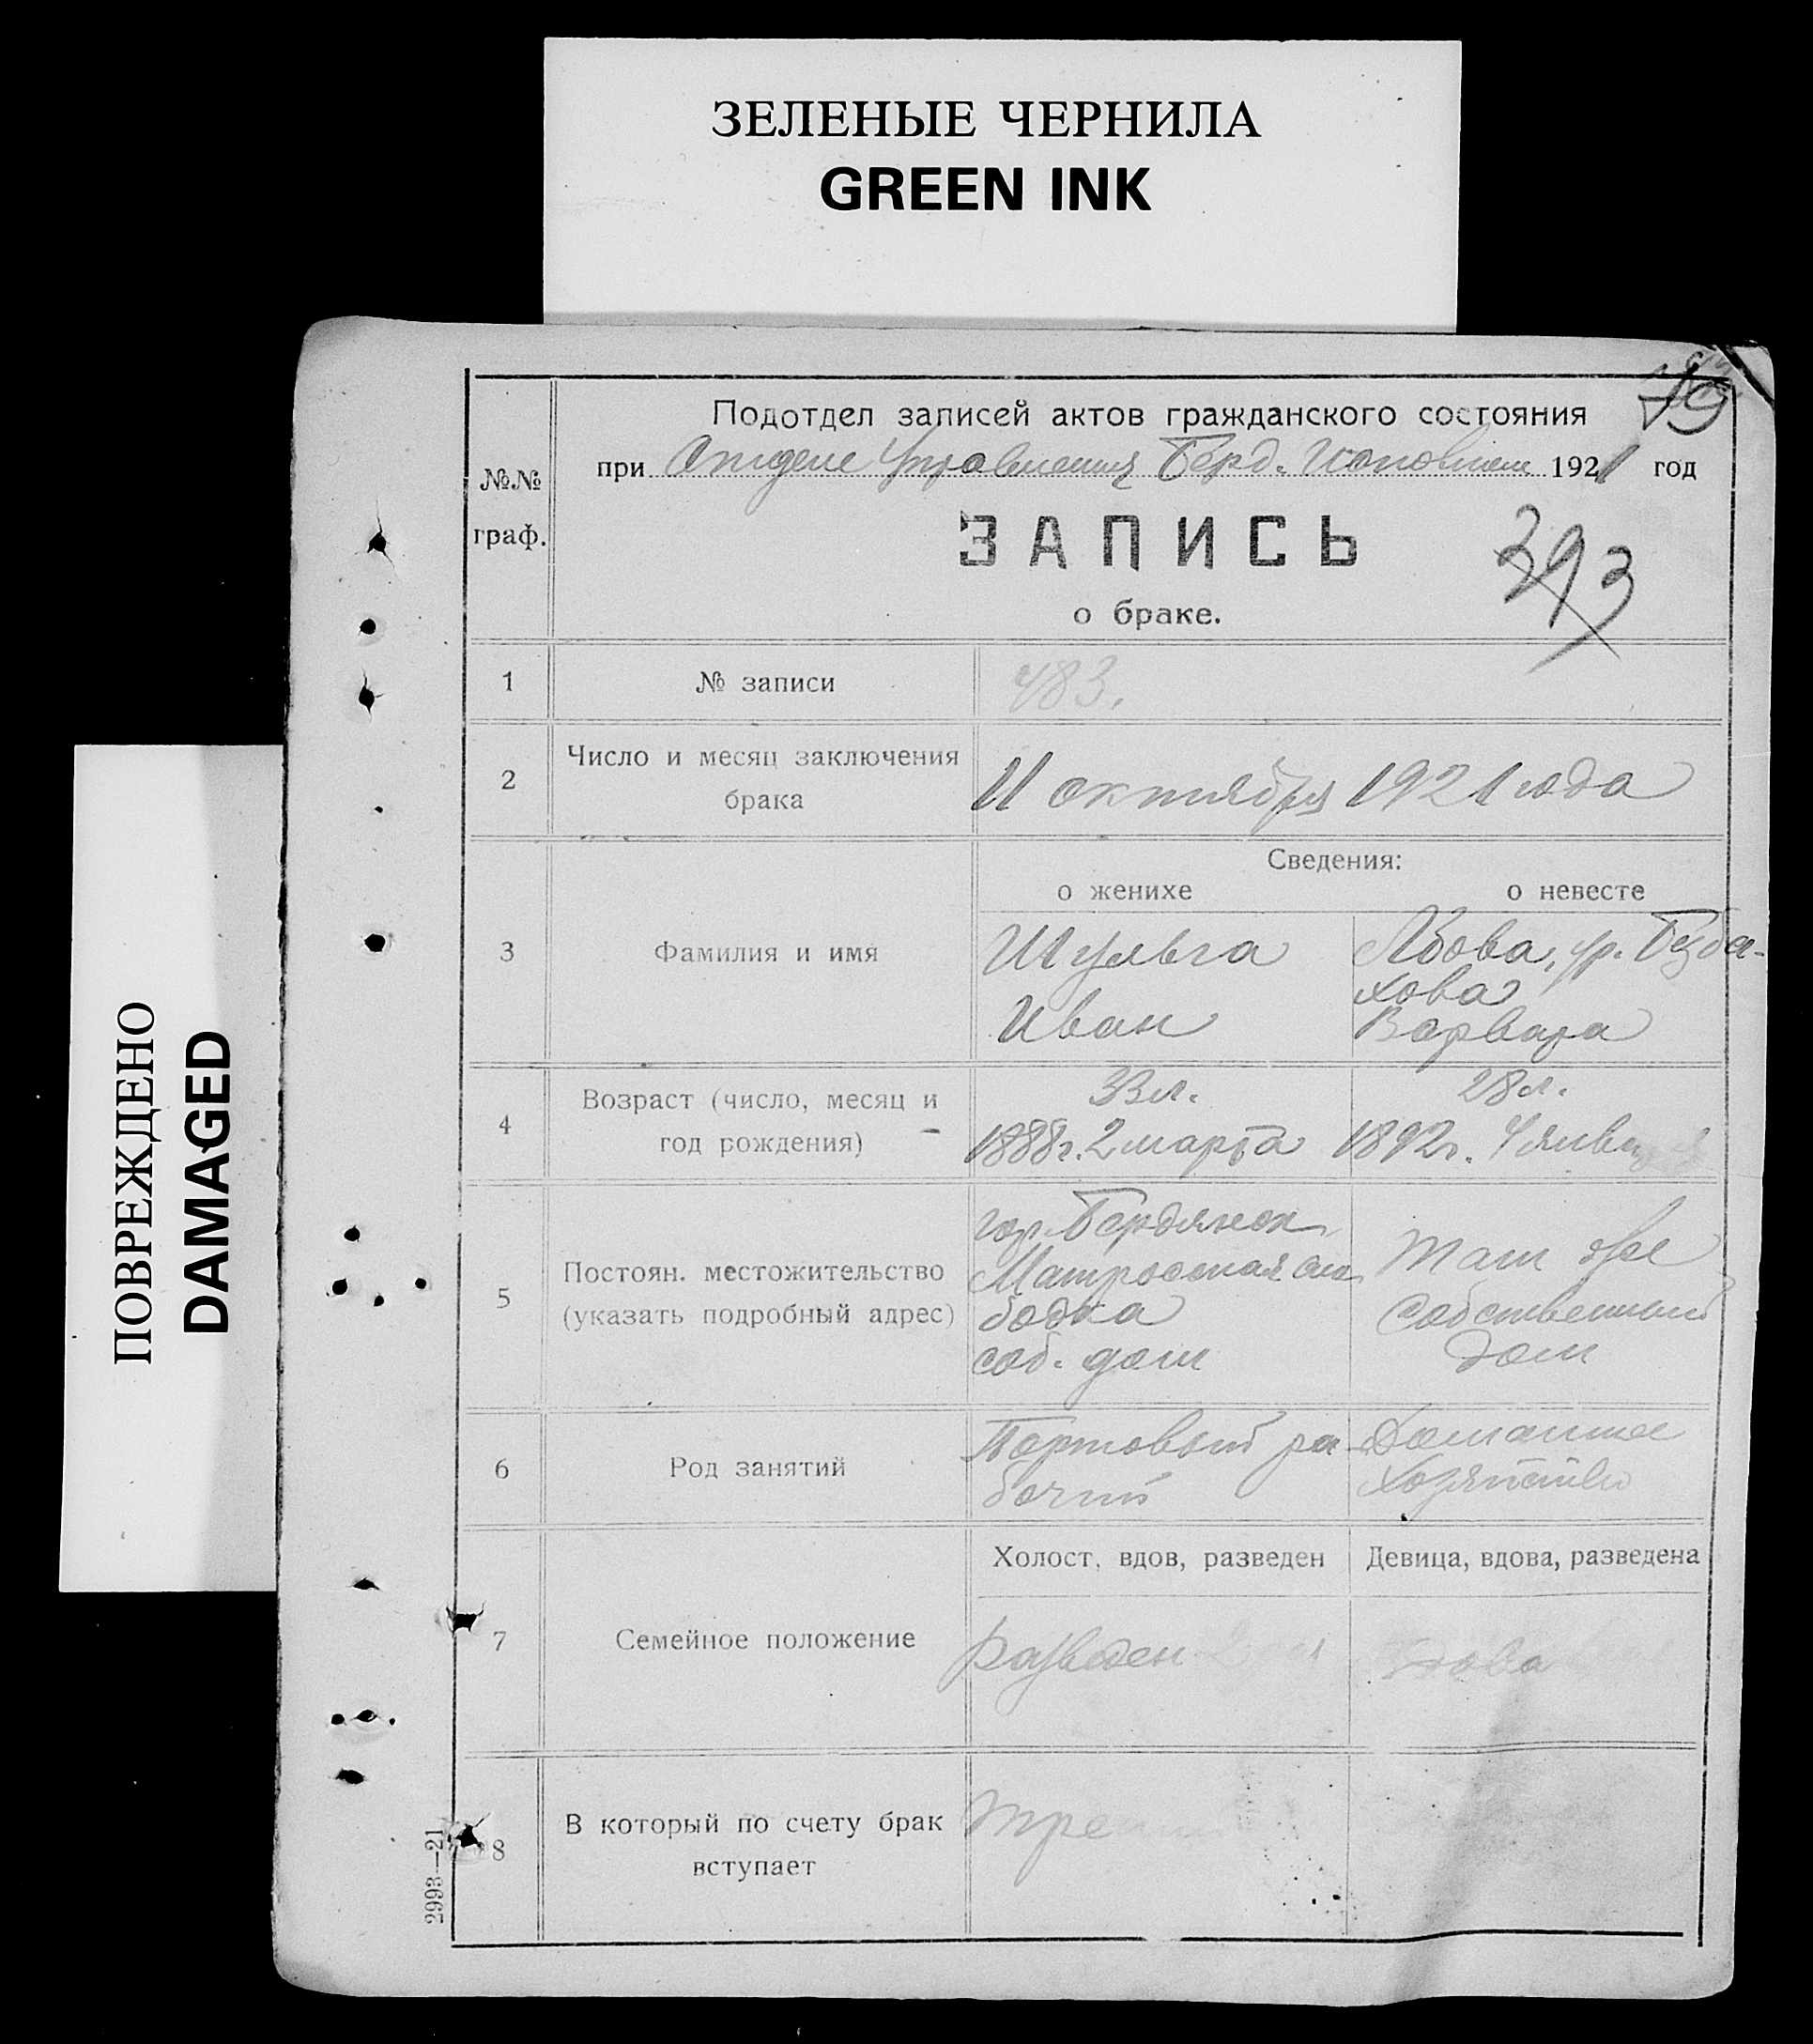 ЗЕЛЕНЫЕ ЧЕРНИЛА
GREEN INK
ПОВРЕЖДЕНО
DAMAGED
Подотдел записей актов гражданского состояния
при Отделе Управления Берд. Исполкома 1921 год
№№
граф.
ЗАПИСЬ
393
о браке.
1 № записи 483.
2 Число и месяц заключения
брака
11 октября 1921 года
Сведения:
о женихе о невесте
3 Фамилия и имя
Шульга
Иван
Лбова, ур. Буба-
хова
Варвара
4 Возраст (число, месяц и
год рождения)
33 л.
1888 г. 2 марта
28 л.
1892 г. 4 января
5 Постоян. местожительство
(указать подробный адрес)
гор. Бердянск
Матросская сло
бодка
соб. дом
Там же
собственный
дом
6 Род занятий
Портовый ра-
бочий
Домашнее
хозяйство
Холост, вдов, разведен Девица, вдова, разведена
7 Семейное положение
Разведен
вдова
8 В который по счету брак
вступает
2993—21